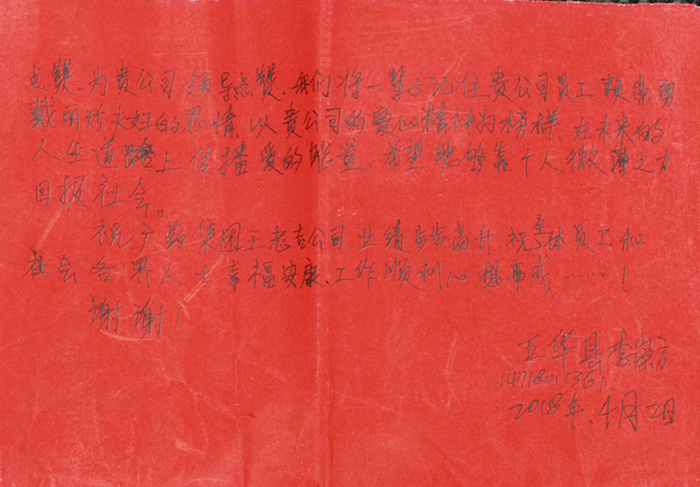 点赞,为贵公司领导点赞,我们将一辈子记住贵公司员工赖崇剪
戴丽珍夫妇的恩情,以贵公司的爱心精神为榜样,在未来的
人生道路上传播爱的能量,希望能够靠个人微薄之力
回报社会。
祝广药集团王老吉公司,业绩步步高升 祝全体员工和
社会各界人士幸福安康,工作顺利心想事成……!
谢谢!
五华县李崇方
14718011361
2018年,4月2日